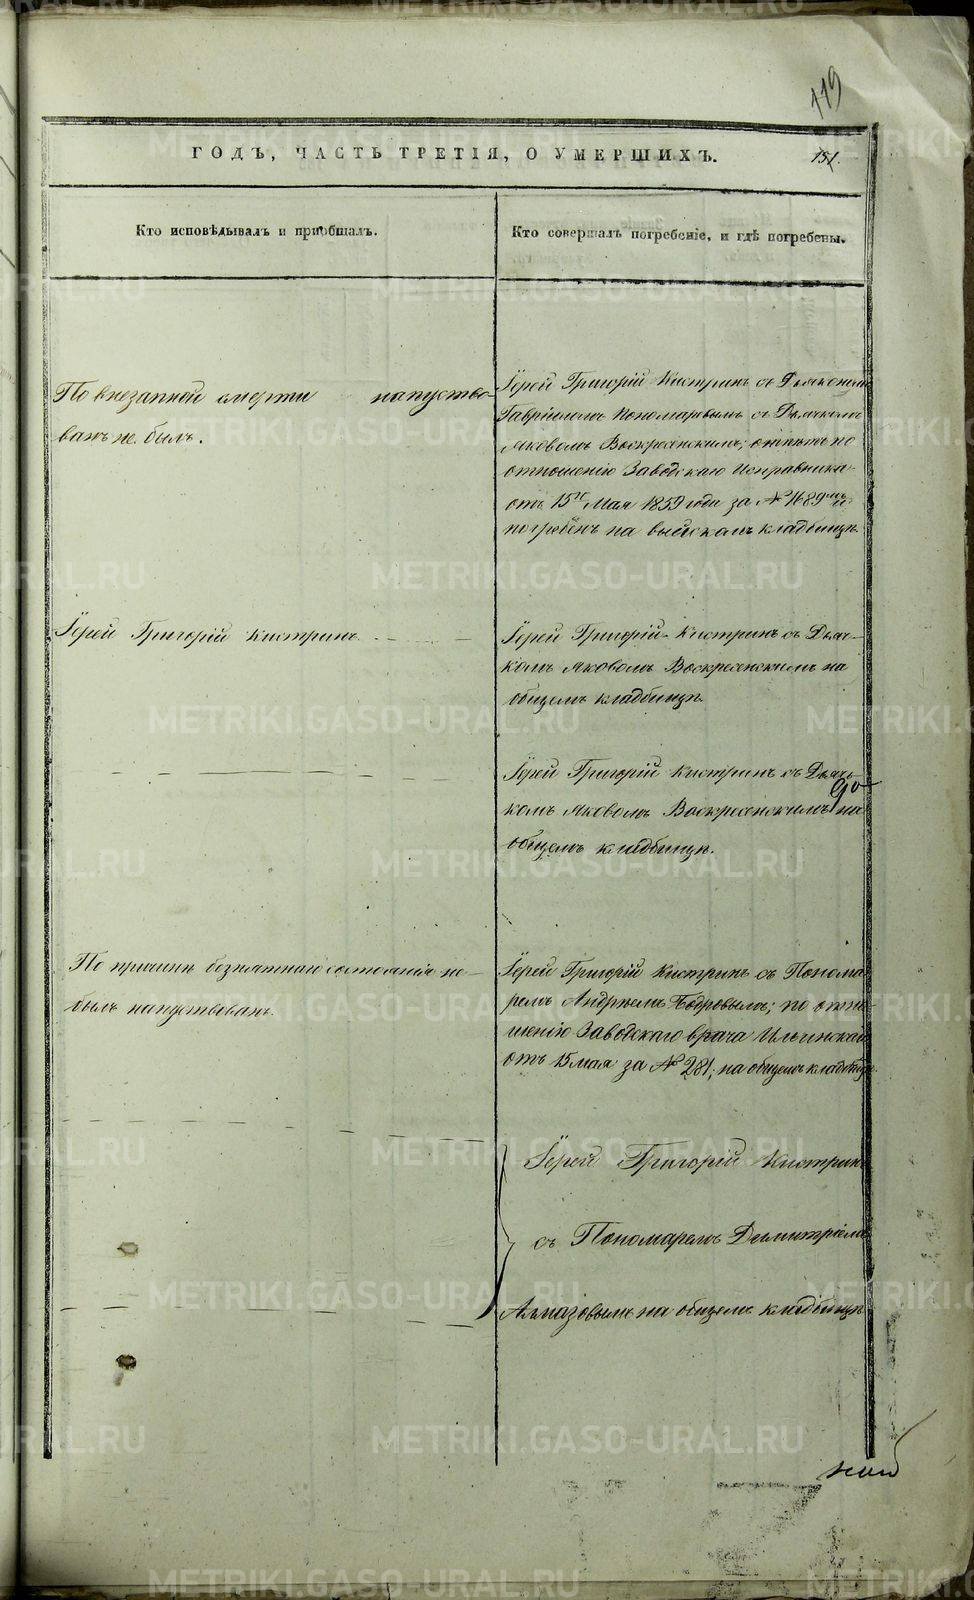 119
ГОДЪ, ЧАСТЬ ТРЕТІЯ, О УМЕРШИХЪ.
151.
Кто исповѣдывалъ и пріобщалъ.
Кто совершалъ погребеніе, и гдѣ погребены.
По внезапной смерти напутство-
ванъ не былъ.
Іерей Григорій Кистринъ съ Дьякономъ
Гавріиломъ Пономаревымъ съ Дьячкомъ
Яковомъ Воскресенскимъ; отпѣтъ по
отношенію Заводскаго Исправника
отъ 15го Мая 1859 года за № 1689мъ и
погребёнъ на выйскомъ кладбищѣ.
Іерей Григорій Кистринъ
Іерей Григорій Кистринъ съ Дьяч-
комъ Яковомъ Воскресенскимъ на
общемъ кладбищѣ.
Іерей Григорій Кистринъ съ Дьяч-
комъ Яковомъ Воскресенскимъ на
общемъ кладбищѣ.
По причинѣ безпамятнаго состоянія не
былъ напутствованъ.
Іерей Григорій Кистринъ съ Понома-
ремъ Андреемъ Бодровымъ; по отно-
шенію Заводскаго врача Ильинскаго
отъ 15 мая за № 281; на общемъ кладбищѣ.
Іерей Григорій Кистринъ
съ Пономаремъ Димитріемъ
Алмазовымъ на общемъ кладбищѣ
METRIKI.GASO-URAL.RU